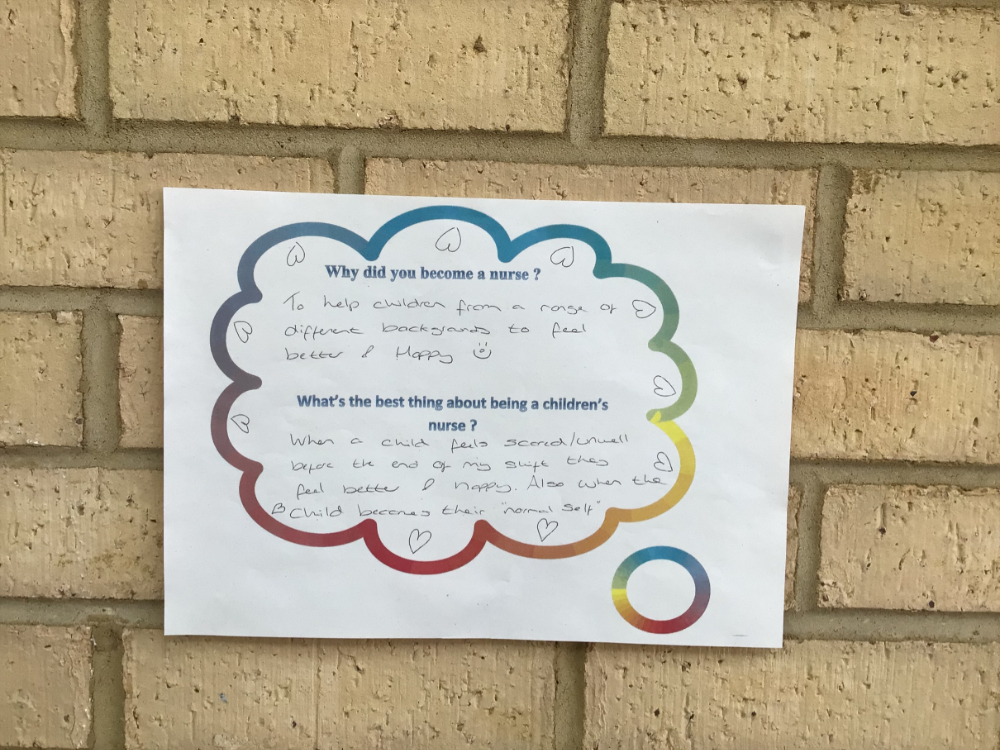 Why did you become a nurse ?
To help children from a range of
different backgrands to feel
better & Happy
What's the best thing about being a children's
nurse ?
When a child feels scared/unwell
before the end of my shift they
feel better & happy. Also when the
child becomes their "normal self"